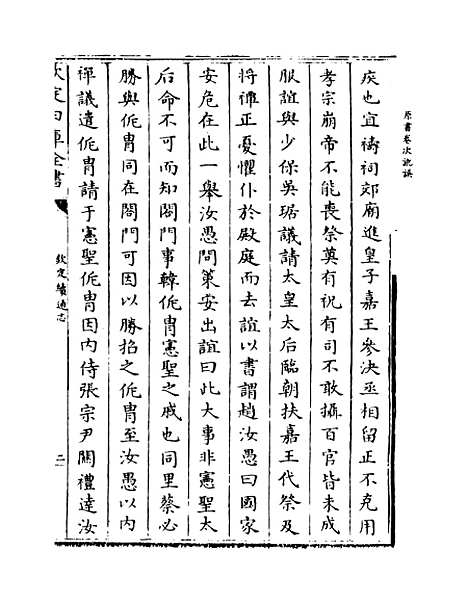 原書卷次訛誤
疾也宜禱祠郊廟進皇子嘉王參決丞相留正不克用
孝宗崩帝不能喪祭奠有祝有司不敢攝百官皆未成
服誼與少保吳琚議請太皇太后臨朝扶嘉王代祭及
將禫正憂懼仆於殿庭而去誼以書謂趙汝愚曰國家
安危在此一舉汝愚問策安出誼曰此大事非憲聖太
后命不可而知閤門事韓侂胄憲聖之戚也同里蔡必
勝與侂胄同在閤門可因以勝招之侂胄至汝愚以内
禪議遣侂胄請于憲聖侂胄因内侍張宗尹關禮達汝
欽定四庫全書
欽定續通志
二